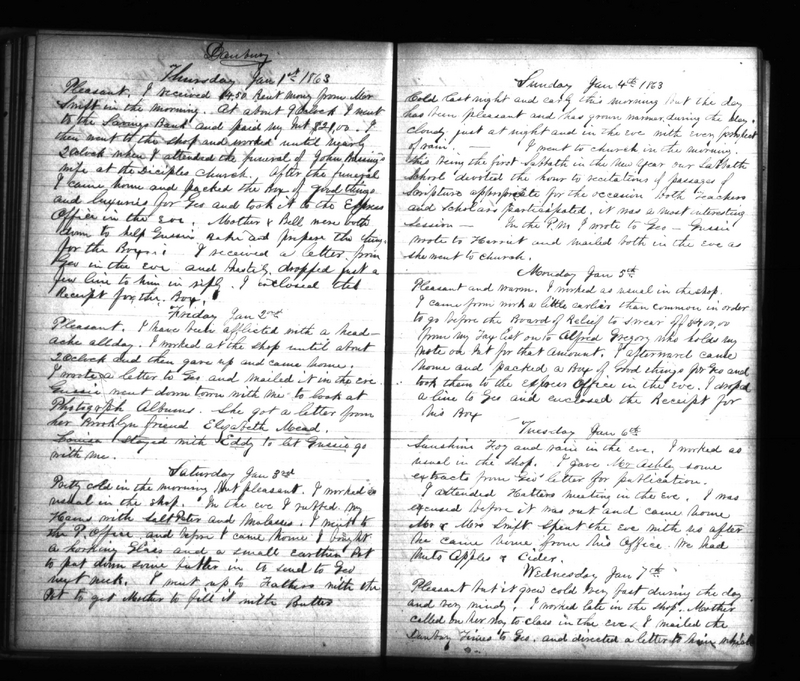 Danbury
Thursday Jan 1st 1863
Pleasant, I received 14.50 Rent money from Mr
Swift in the morning. At about 9 Oclock I went
to the Savings Bank and paid my Int $21.00. I
then went to the shop and worked until nearly
2 Oclock when I attended the funeral of John
wife at the Deciples Church. After the funeral
I came home and packed the Box of good things
and Luxuries for Geo and took it to the Express
Office in the Eve. Mother & Bell were both
down to help Gussie bake and prepare the things
for the Box. I received a letter from
Geo in the eve and hastily dropped just a
few line to him in reply. I enclosed the
Receipt for the Box.
Friday Jan 2nd
Pleasant. I have been afflicted with a head-
ache all day. I worked at the shop until about
2 Oclock and then gave up and came home.
I wrote a letter to Geo and mailed it in the eve
Gussie went down town with me to look at
Photograph Albums. She got a letter from
her Brooklyn friend Elizabeth Mead.
Louisa stayed with Eddy to let Gussie go
with me.
Saturday Jan 3rd
Pretty cold in the morning but pleasant. I worked as
usual in the shop. In the eve I rubbed my
Hams with Salt Peter and Molasses. I went to
the P. Office, and before I came home I bought
a Looking Glass and a small earthen Pot
to put down some butter in to send to Geo
next week. I went up to Fathers with the
Pot to get Mother to fill it with Butter
Sunday Jan 4th 1863
Cold last night and early this morning but the day
has been pleasant and has grown warmer during the day,
cloudy just at night and in the Eve with every prospect
of rain. I went to church in the morning.
This being the first Sabbath in the New Year our Sabbath
School devoted the hour to recitations of passages of
Scripture appropriate for the occasion both Teachers
and Scholars participated, it was a most interesting
Session — In the P.M. I wrote to Geo — Gussie
wrote to Harriet and mailed both in the eve as
she went to church.
Monday Jan 5th
Pleasant and warm. I worked as usual in the shop.
I came from work a little earlier than common in order
to go before the Board of Relief to swear off
from my Tax List on to Alfred Gregory who holds my
Note on Int for that amount. I afterward came
home and packed a Box of Good things for Geo and
took them to the Express Office in the eve. I droped
a line to Geo and enclosed the Receipt for
his Box
Tuesday Jan 6th
Sunshine Fog and rain in the eve. I worked as
usual in the shop. I gave Mr Ashley some
extracts from Geo' letter for publication.
I attended Hatters meeting in the Eve. I was
excused before it was out and came home
Mr & Mrs Swift Spent the Eve with us after
he came home from his Office. We had
Nuts Apples & Cider.
Wednesday Jan 7th
Pleasant but it grew cold very fast during the day
and very windy. I worked late in the shop. Mother
called on her way to class in the eve. I mailed the
Danbury Times to Geo. and directed a letter to him which